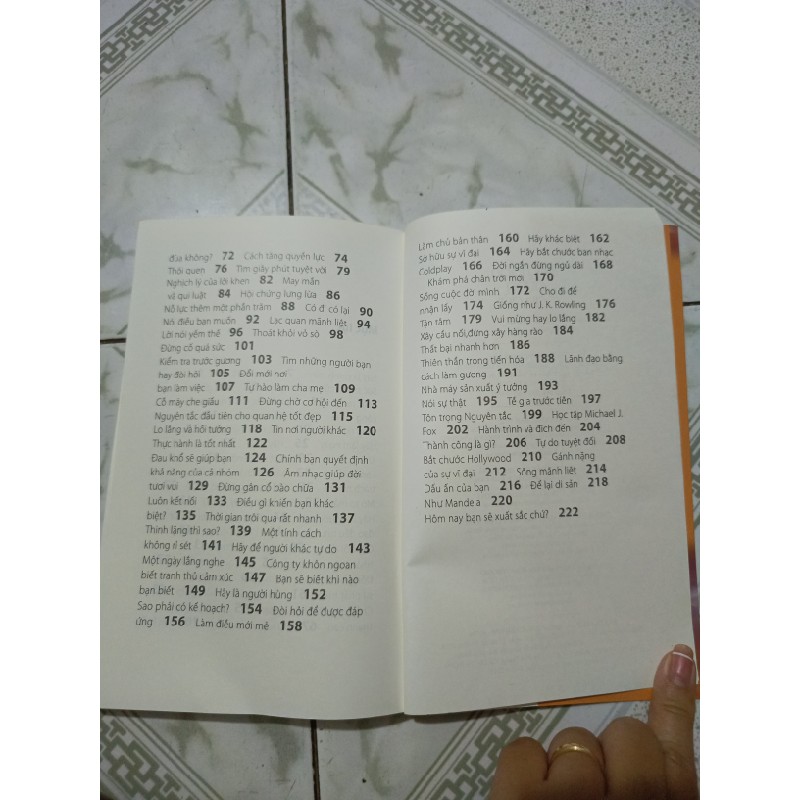 đùa không? 72 Cách tăng quyền lực 74
Thói quen 76 Tìm giây phút tuyệt vời 79
Nghịch lý của lời khen 82 May mắn
và qui luật 84 Hội chứng lưng lừa 86
Nỗ lực thêm một phần trăm 88 Có đi có lại 90
Nói điều bạn muốn 92 Lạc quan mãnh liệt 94
Lời nói yếm thế 96 Thoát khỏi vỏ sò 98
Đừng cố quá sức 101
Kiểm tra trước gương 103 Tìm những người bạn
hay đòi hỏi 105 Đổi mới nơi
bạn làm việc 107 Tự hào làm cha mẹ 109
Cỗ máy che giấu 111 Đừng chờ cơ hội đến 113
Nguyên tắc đầu tiên cho quan hệ tốt đẹp 115
Lo lắng và hồi tưởng 118 Tin nơi người khác 120
Thực hành là tốt nhất 122
Đau khổ sẽ giúp bạn 124 Chính bạn quyết định
khả năng của cả nhóm 126 Âm nhạc giúp đời
tươi vui 129 Đừng gân cổ bào chữa 131
Luôn kết nối 133 Điều gì khiến bạn khác
biệt? 135 Thời gian trôi qua rất nhanh 137
Thinh lặng thì sao? 139 Một tính cách
không rỉ sét 141 Hãy để người khác tự do 143
Một ngày lắng nghe 145 Công ty khôn ngoan
biết tranh thủ cảm xúc 147 Bạn sẽ biết khi nào
bạn biết 149 Hãy là người hùng 152
Sao phải có kế hoạch? 154 Đòi hỏi để được đáp
ứng 156 Làm điều mới mẻ 158
Làm chủ bản thân 160 Hãy khác biệt 162
Sở hữu sự vĩ đại 164 Hãy bắt chước ban nhạc
Coldplay 166 Đời ngắn đừng ngủ dài 168
Khám phá chân trời mới 170
Sống cuộc đời mình 172 Cho đi để
nhận lấy 174 Giống như J. K. Rowling 176
Tận tâm 179 Vui mừng hay lo lắng 182
Xây cầu nối, đừng xây hàng rào 184
Thất bại nhanh hơn 186
Thiên thần trong tiến hóa 188 Lãnh đạo bằng
cách làm gương 191
Nhà máy sản xuất ý tưởng 193
Nói sự thật 195 Tề gia trước tiên 197
Tôn trọng Nguyên tắc 199 Học tập Michael J.
Fox 202 Hành trình và đích đến 204
Thành công là gì? 206 Tự do tuyệt đối 208
Bắt chước Hollywood 210 Gánh nặng
của sự vĩ đại 212 Sống mãnh liệt 214
Dấu ấn của bạn 216 Để lại di sản 218
Như Mandea 220
Hôm nay bạn sẽ xuất sắc chứ? 222